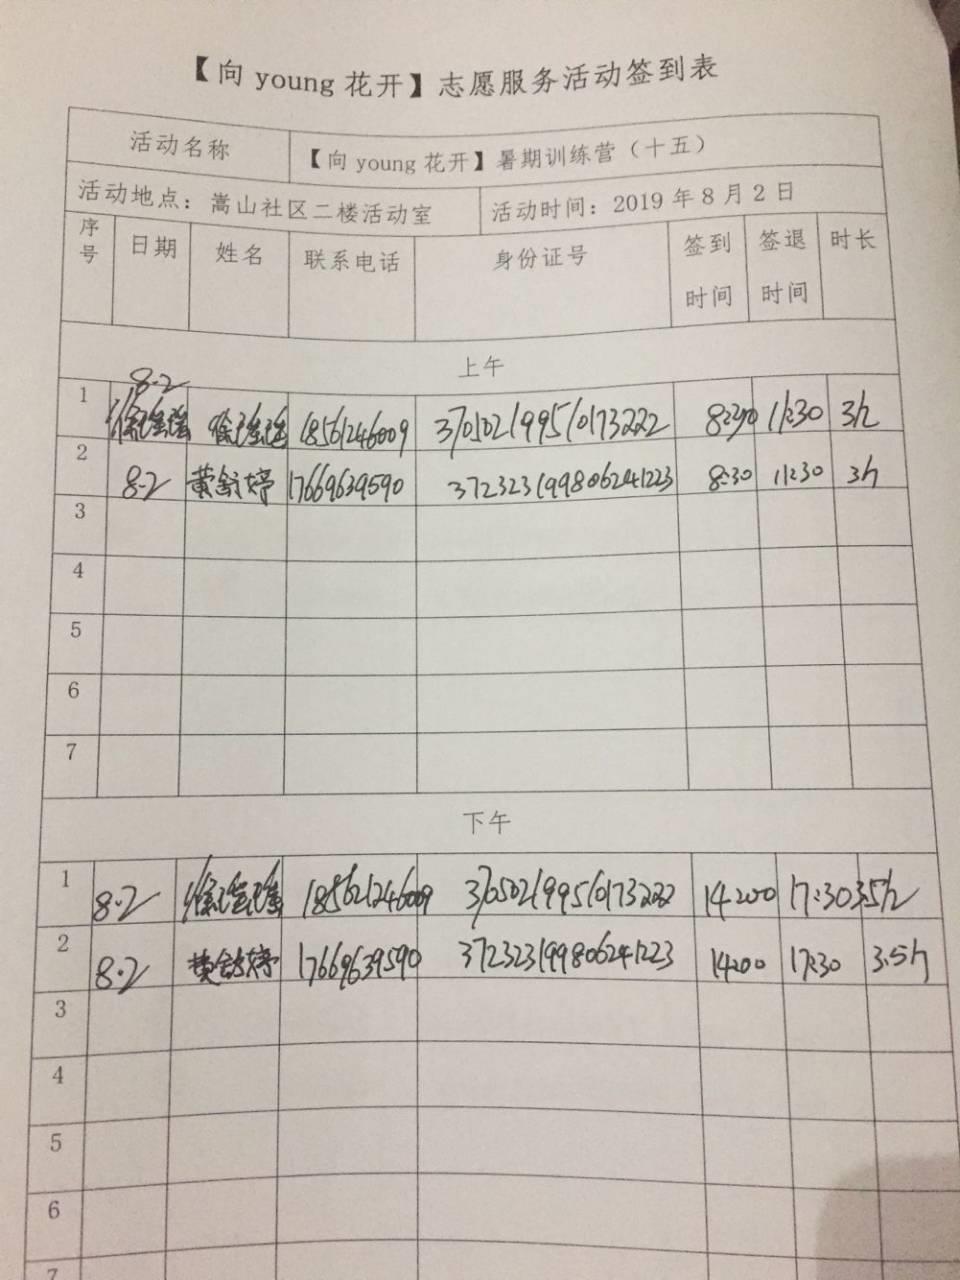 【向 young 花开】志愿服务活动签到表
活动名称 【向 young 花开】暑期训练营（十五）
活动地点：嵩山社区二楼活动室 活动时间：2019 年 8 月 2 日
序号 日期 姓名 联系电话 身份证号 签到时间 签退时间 时长
上午
8.2
1 18561246009 370502199510173222 8:30 11:30 3h
2 8.2 黄舒婷 17669639590 372323199806241223 8:30 11:30 3h
3
4
5
6
7
下午
1 8.2 18561246009 370502199510173222 14:00 17:30 3.5h
2 8.2 黄舒婷 17669639590 372323199806241223 14:00 17:30 3.5h
3
4
5
6
7